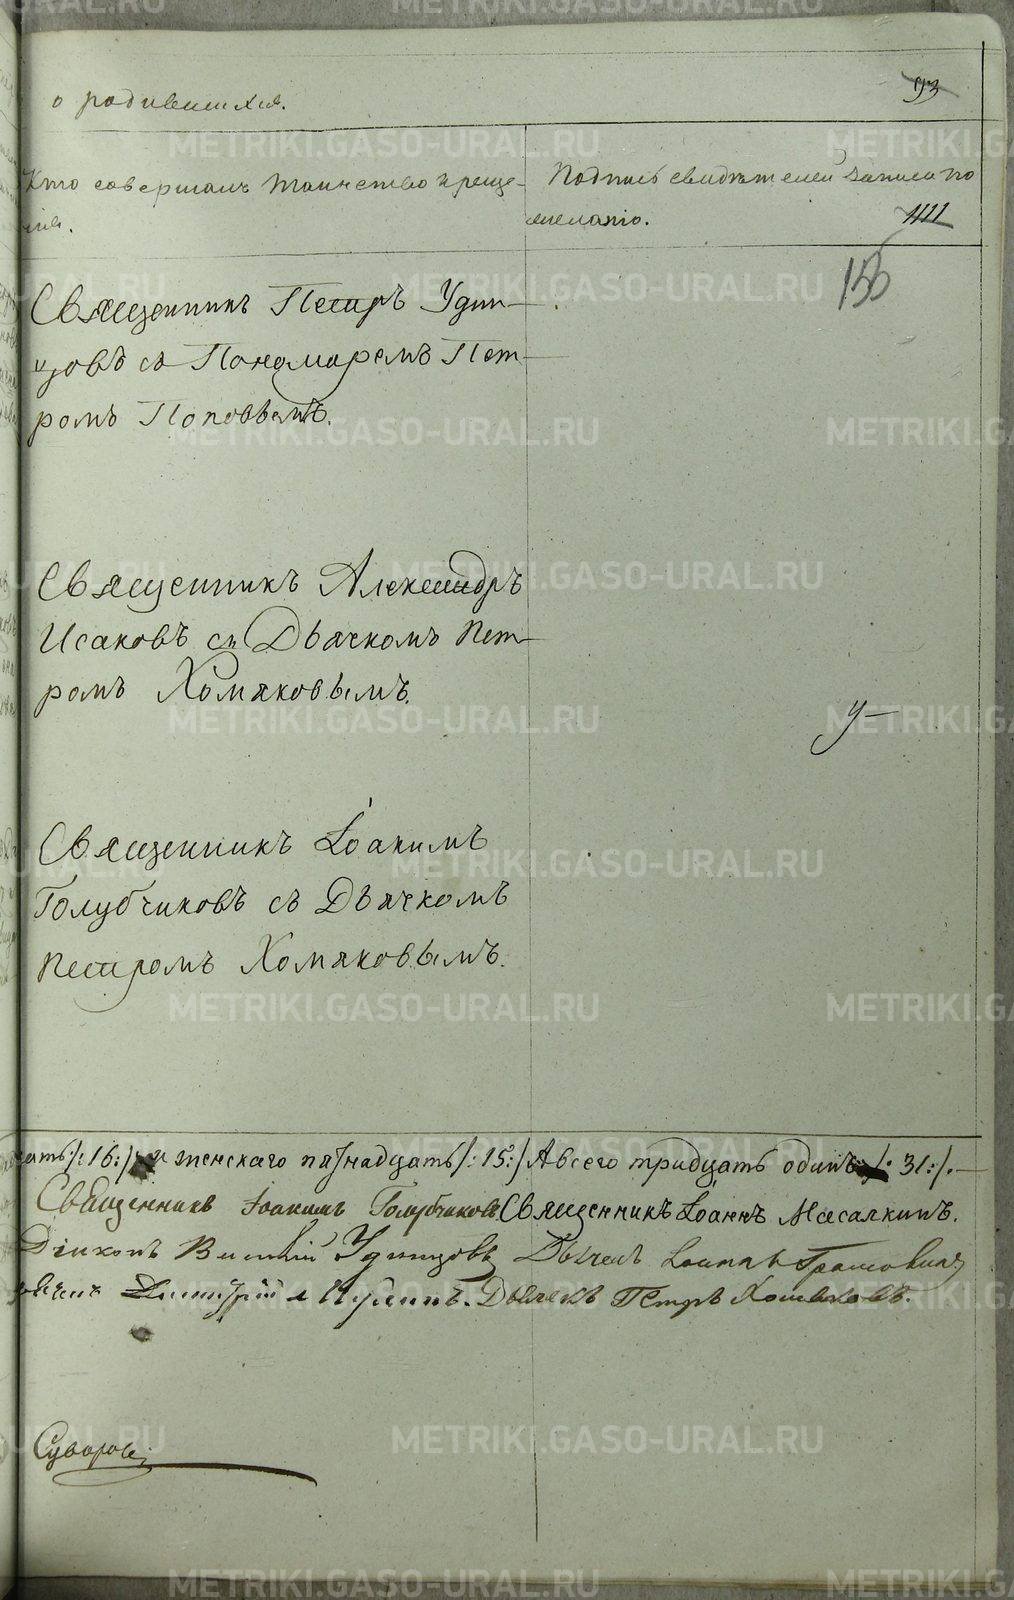 о родившихся.
93
Кто совершалъ таинство креще-
нія.
Подпись свидѣтелей записи по
желанію.
1111
156
Священникъ Петръ Удин-
цовъ съ Пономаремъ Пет-
ромъ Поповымъ.
Священникъ Александръ
Исаковъ съ Дьячкомъ Пет-
ромъ Хомяковымъ.
У-
Священникъ Іоакимъ
Голубчиковъ съ Дьячкомъ
Петромъ Хомяковымъ.
цать/:16:/ и женскаго пятнадцать/:15:/ А всего тридцать одинъ /:31:/.
Священникъ Іоакимъ Голубчиковъ Священникъ Іоаннъ Масалкинъ.
Діаконъ Удинцовъ Дьячекъ
Димитрій Дьячекъ Петръ Хомяковъ.
Суворовъ
METRIKI.GASO-URAL.RU